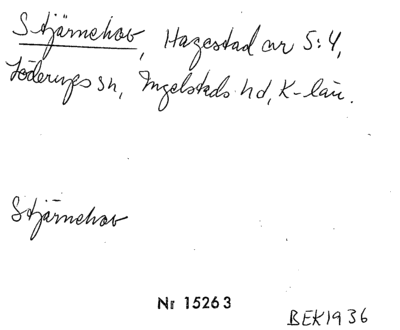 Stjärnehov, Hagestad nr 5:4,
Löderups sn, Ingelstads hd, K-län.
Stjärnehov
Nr 15263
BEK1936